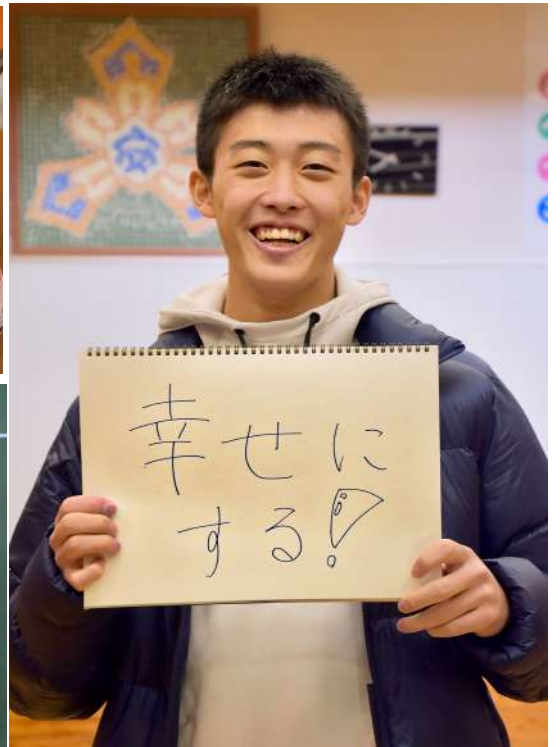 幸せに
する!